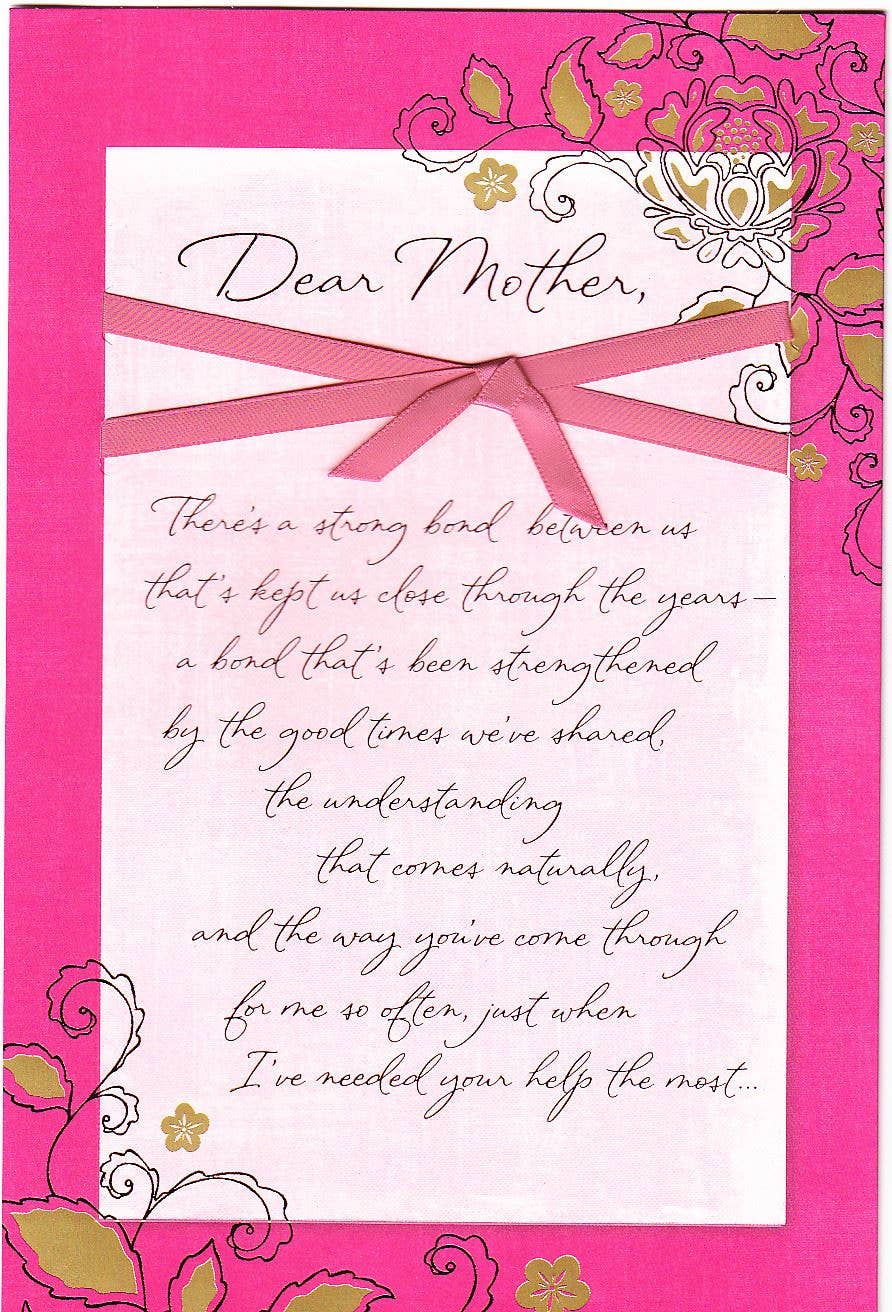 Dear Mother,
There's a strong bond between us
that's kept us close through the years—
a bond that's been strengthened
by the good times we've shared,
the understanding
that comes naturally,
and the way you've come through
for me so often, just when
I've needed your help the most...